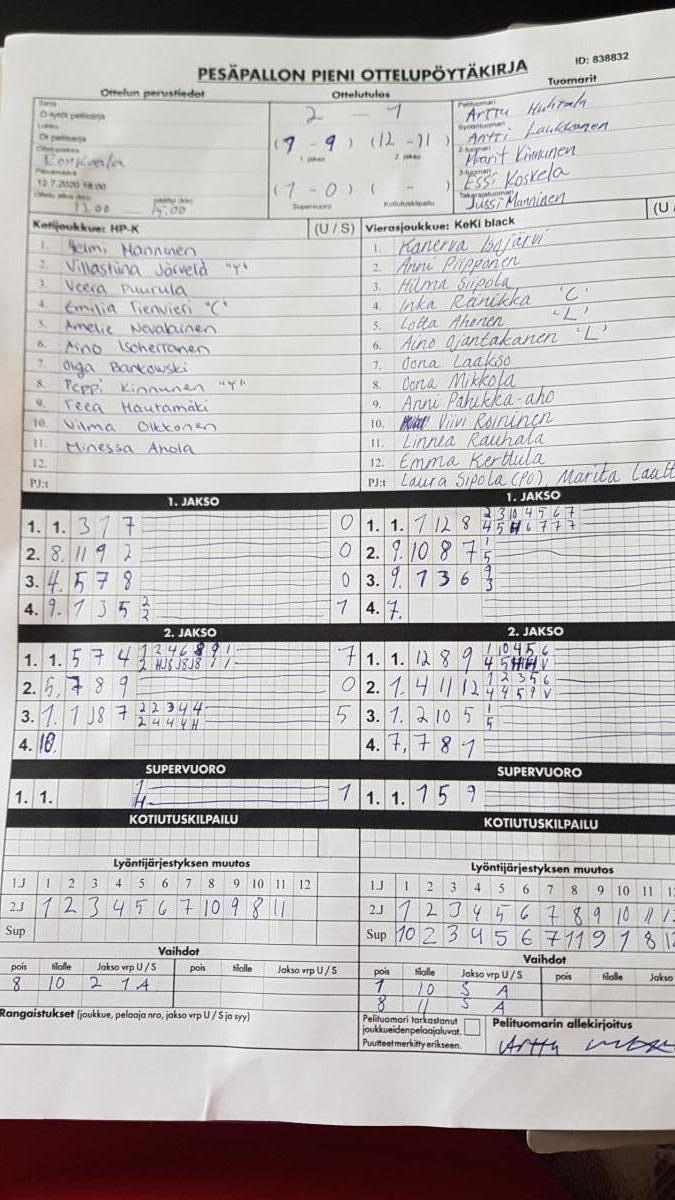 PESÄPALLON PIENI OTTELUPÖYTÄKIRJA
ID: 838832
Ottelun perustiedot
Ottelutulos
Tuomarit
2 - 1
(7 - 9) (12 - 11)
1. jakso 2. jakso
(1 - 0) ( - )
Supervuoro Kotiutuskilpailu
12.7.2020 18:00
13.00 15.00
Pelituomari Arttu Huhtala
Antti Laukkanen
Marit Kinnunen
Essi Koskela
Takarajatuomari Jussi Manninen
Kotijoukkue: HP-K (U / S)
1. Helmi Manninen
2. Villastiina Järvelä "Y"
3. Veera Puurula
4. Emilia Tienvieri "C"
5. Amelie Nevalainen
6. Aino Isoherranen
7. Olga Bankowski
8. Peppi Kinnunen "Y"
9. Teea Hautamäki
10. Vilma Olkkonen
11. Minessa Ahola
12.
PJ:t
Vierasjoukkue: KeKi black (U
1. Kanerva Isojärvi
2. Anni Piipponen
3. Hilma Siipola
4. Inka Reinikka 'C'
5. Lotta Ahonen 'L'
6. Aino Ojantakanen 'L'
7. Oona Laakso
8. Oona Mikkola
9. Anni Pahikka-aho
10. Viivi Roininen
11. Linnea Rauhala
12. Emma Kerttula
PJ:t Laura Sipola (PJ), Marita
1. JAKSO
1. 1. 3 1 7 0
2. 8. 11 9 2 0
3. 4. 5 7 8 0
4. 9. 1 3 5 2 1
2
1. JAKSO
1. 1. 1 12 8 2 3 10 4 5 6 7
2. 9. 10 8 7 1
5
3. 9. 1 3 6 9
3
4. 7.
2. JAKSO
1. 1. 5 7 4 1 2 4 6 8 9 1 7
2. 5. 7 8 9 0
3. 1. 1 J8 7 2 2 3 4 4 5
2 4 4 4 H
4. 10.
2. JAKSO
1. 1. 12 8 9 1 10 4 5 6
2. 1. 4 11 12 1 2 3 5 6
4 4 5 9 V
3. 1. 2 10 5 1
5
4. 7, 7 8 1
SUPERVUORO
1. 1. 1
H
1
SUPERVUORO
1. 1. 1 5 9
KOTIUTUSKILPAILU
KOTIUTUSKILPAILU
Lyöntijärjestyksen muutos
1.J 1 2 3 4 5 6 7 8 9 10 11 12
2.J 1 2 3 4 5 6 7 10 9 8 11
Sup
Lyöntijärjestyksen muutos
1.J 1 2 3 4 5 6 7 8 9 10 11
2.J 1 2 3 4 5 6 7 8 9 10 11
Sup 10 2 3 4 5 6 7 11 9 1 8
Vaihdot
pois tilalle Jakso vrp U / S pois tilalle Jakso vrp U / S
8 10 2 1 A
Vaihdot
pois tilalle Jakso vrp U / S pois tilalle Jakso
1 10 S A
8 11 S A
Rangaistukset (joukkue, pelaaja nro, jakso vrp U / S ja syy)
Pelituomari tarkastanut
joukkueiden pelaajaluvat.
Puutteet merkitty erikseen.
Pelituomarin allekirjoitus
Arttu